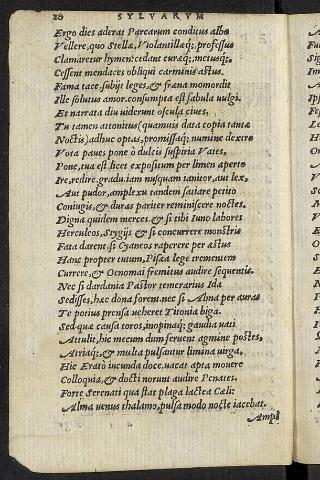 28 SYLVARVM
Ergo dies aderat Parcarum conditus albo
Vellere, quo Stellæ, Violantillæq;, professus
Clamaretur hymen: cedant curæq;, metusq;,
Cessent mendaces obliqui carminis astus.
Fama tace, subijt leges, & fræna momordit
Ille solutus amor. consumpta est fabula vulgi.
Et narrata diu viderunt oscula ciues,
Tu tamen attonitus (quamuis data copia tantæ
Noctis) adhuc optas, promissaq; numine dextro
Vota paues pone ô dulcis suspiria Vates,
Pone, tua est. licet expositum per limen aperto
Ire, redire. gradu. iam nusquam ianitor, aut lex,
Aut pudor, amplexu tandem satiare petito
Coniugis, & duras pariter reminiscere noctes.
Digna quidem merces. & si tibi Iuno labores
Herculeos, Stygijs & si concurrere monstris
Fata darent, si Cyaneos raperere per æstus
Hanc propter tutum, Pisæa lege trementem
Currere, & Oenomai fremitus audire sequentis.
Nec si dardania Pastor temerarius Ida
Sedisses, hæc dona forent. nec si Alma per auras
Te potius prensa veheret Titonia biga.
Sed quæ causa toros, inopinaq; gaudia vati
Attulit, hic mecum dum feruent agmine postes,
Atriaq;, & multa pulsantur limina virga,
Hic Eratô iucunda doce. vacat apta mouere
Colloquia, & docti norunt audire Penates.
Forte serenati qua stat plaga lactea Cæli:
Alma venus thalamo, pulsa modo nocte iacebat.
Amp